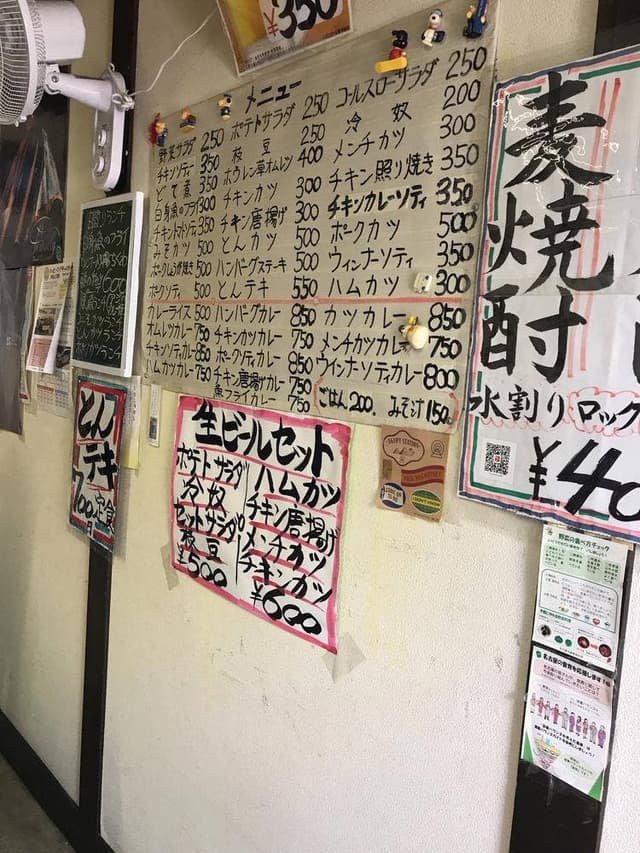 大 350
メニュー
野菜サラダ 250 ポテトサラダ 250 コールスローサラダ 250
チキンソテー 350 枝豆 250 冷奴 200
どて煮 350 ホウレン草オムレツ 400 メンチカツ 300
白身魚のフライ 300 チキンカツ 300 チキン照り焼き 350
チキントマトソテー 350 チキン唐揚げ 300 チキンカレーソティ 350
みそカツ 500 とんカツ 500 ポークカツ 500
ポークしょうが焼き 500 ハンバーグステーキ 500 ウィンナーソティ 350
ポークソティ 500 とんテキ 550 ハムカツ 300
カレーライス 500 ハンバーグカレー 850 カツカレー 850
オムレツカレー 750 チキンカツカレー 750 メンチカツカレー 750
チキンソティカレー 850 ポークソティカレー 850 ウインナーソティカレー 800
ハムカツカレー 750 チキン唐揚げカレー 750
魚フライカレー 750
ごはん 200. みそ汁 150.
麦焼酎
水割り ロック
¥40
とん
テキ
定食
700円
生ビールセット
ポテトサラダ
冷奴
セットサラダ
枝豆
¥500
ハムカツ
チキン唐揚げ
メンチカツ
チキンカツ
¥600
野菜の食べ方チェック
名古屋の食育を応援します!